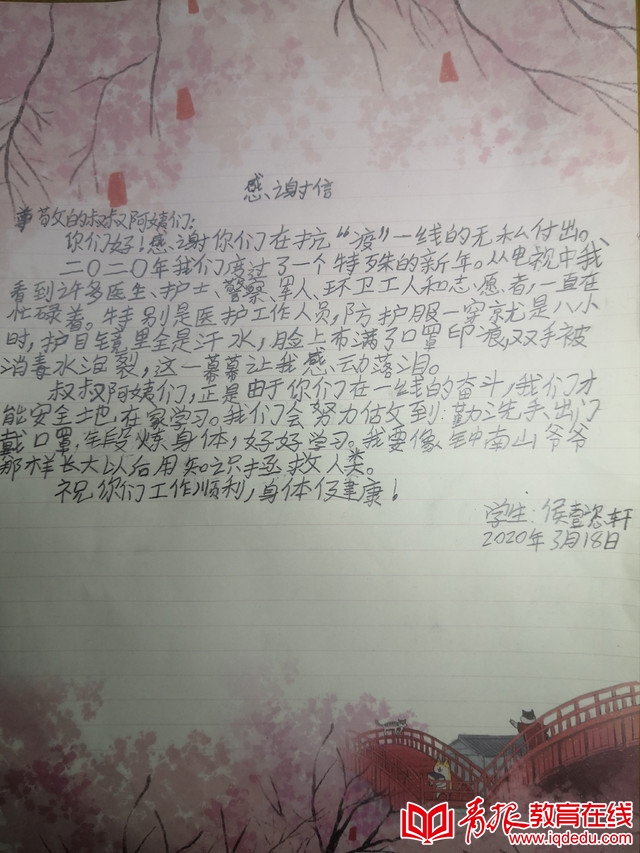 感谢信
尊敬的叔叔阿姨们:
你们好!感谢你们在抗“疫”一线的无私付出。
二〇二〇年我们度过了一个特殊的新年。从电视中我
看到许多医生、护士、警察、军人、环卫工人和志愿者,一直在
忙碌着。特别是医护工作人员,防护服一穿就是八小
时,护目镜里全是汗水,脸上布满了口罩印痕,双手被
消毒水泡裂,这一幕幕让我感动落泪。
叔叔阿姨们,正是由于你们在一线的奋斗,我们才
能安全地在家学习。我们会努力做到:勤洗手、出门
戴口罩、锻炼身体,好好学习。我要像钟南山爷爷
那样长大以后用知识拯救人类。
祝你们工作顺利,身体健康!
学生:侯壹轩
2020年3月18日
青报教育在线
www.iqdedu.com